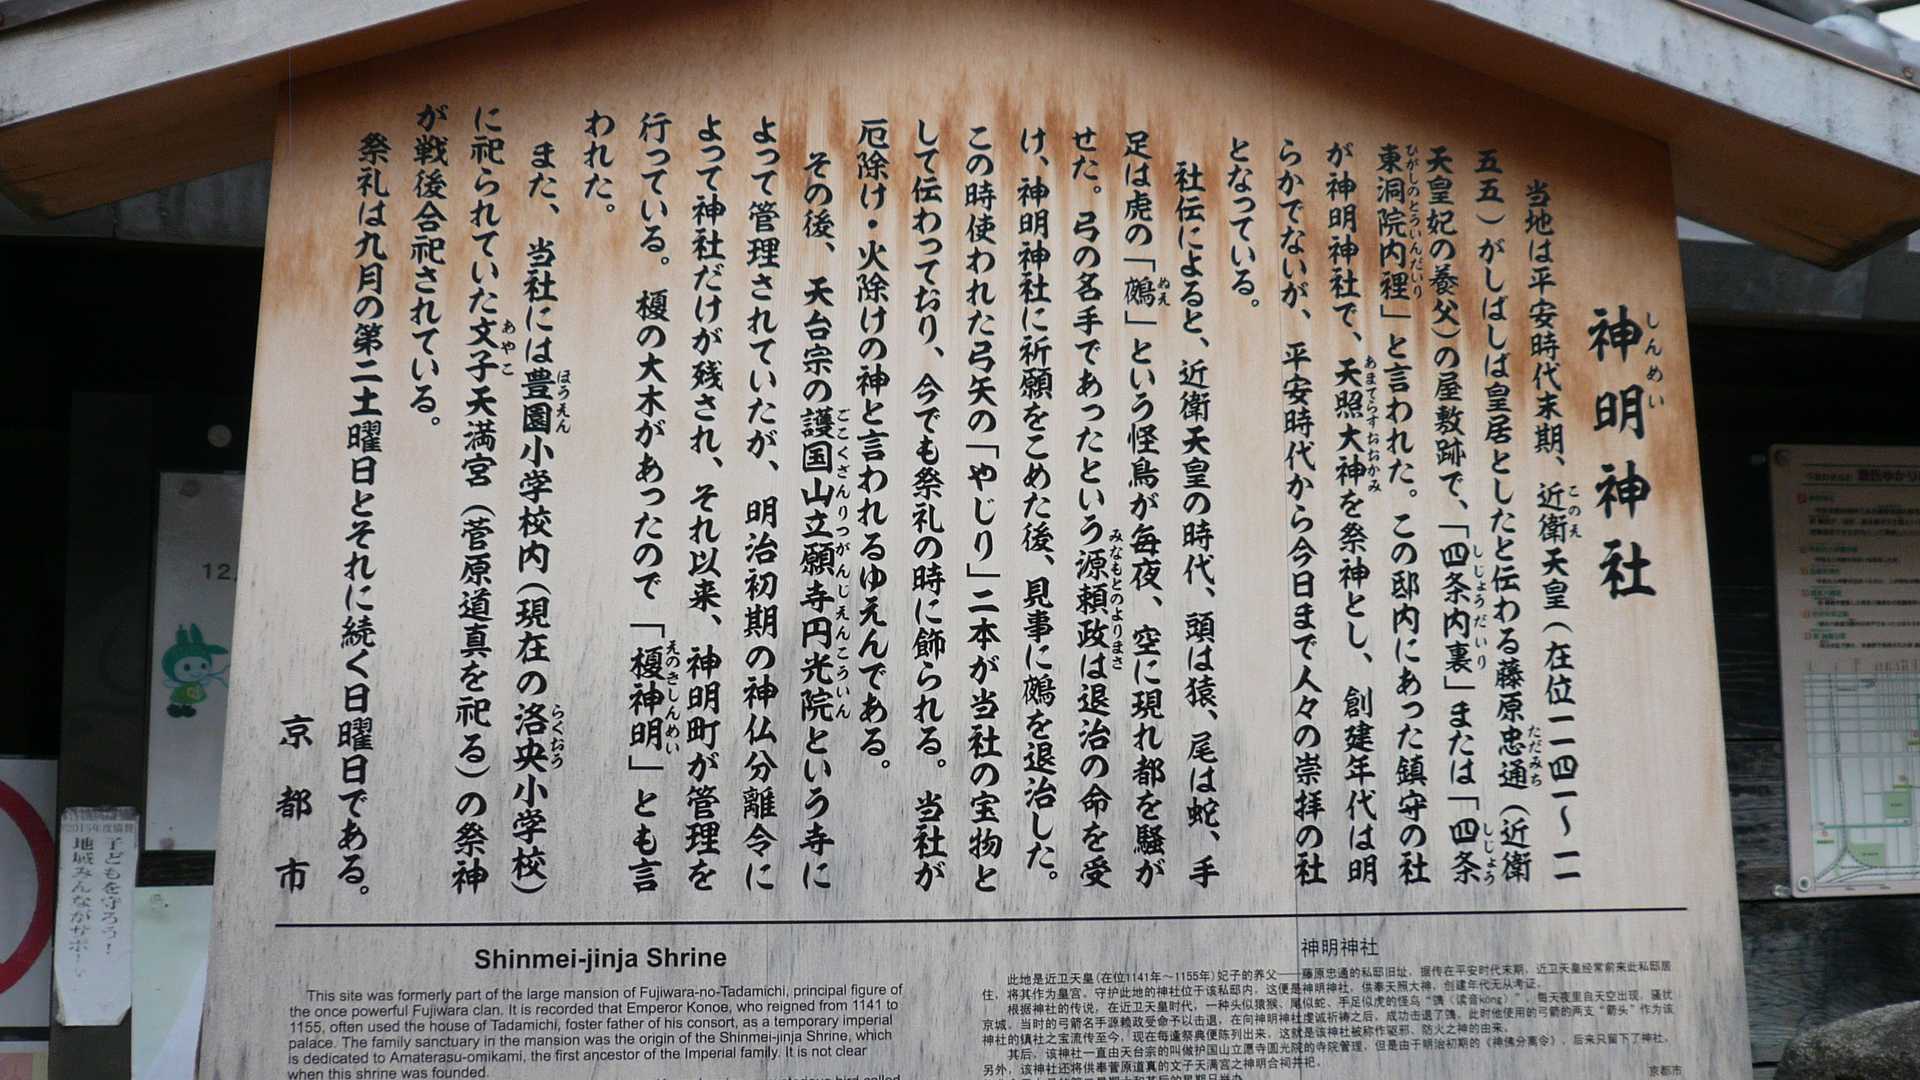 神明神社
当地は平安時代末期、近衛天皇（在位一一四一～一一
五五）がしばしば皇居としたと伝わる藤原忠通（近衛
天皇妃の養父）の屋敷跡で、「四条内裏」または「四条
東洞院内裡」と言われた。この邸内にあった鎮守の社
が神明神社で、天照大神を祭神とし、創建年代は明
らかでないが、平安時代から今日まで人々の崇拝の社
となっている。
社伝によると、近衛天皇の時代、頭は猿、尾は蛇、手
足は虎の「鵺」という怪鳥が毎夜、空に現れ都を騒が
せた。弓の名手であったという源頼政は退治の命を受
け、神明神社に祈願をこめた後、見事に鵺を退治した。
この時使われた弓矢の「やじり」二本が当社の宝物と
して伝わっており、今でも祭礼の時に飾られる。当社が
厄除け・火除けの神と言われるゆえんである。
その後、天台宗の護国山立願寺円光院という寺に
よって管理されていたが、明治初期の神仏分離令に
よって神社だけが残され、それ以来、神明町が管理を
行っている。榎の大木があったので「榎神明」とも言
われた。
また、当社には豊園小学校内（現在の洛央小学校）
に祀られていた文子天満宮（菅原道真を祀る）の祭神
が戦後合祀されている。
祭礼は九月の第二土曜日とそれに続く日曜日である。
京都市
Shinmei-jinja Shrine
This site was formerly part of the large mansion of Fujiwara-no-Tadamichi, principal figure of
the once powerful Fujiwara clan. It is recorded that Emperor Konoe, who reigned from 1141 to
1155, often used the house of Tadamichi, foster father of his consort, as a temporary imperial
palace. The family sanctuary in the mansion was the origin of the Shinmei-jinja Shrine, which
is dedicated to Amaterasu-omikami, the first ancestor of the Imperial family. It is not clear
when this shrine was founded.
神明神社
此地是近卫天皇(在位1141年～1155年)妃子的养父——藤原忠通的私邸旧址，据传在平安时代末期，近卫天皇经常前来此私邸居
住，将其作为皇宫。守护此地的神社位于该私邸内，这便是神明神社，供奉天照大神，创建年代无从考证。
根据神社的传说，在近卫天皇时代，一种头似猿猴、尾似蛇、手足似虎的怪鸟“鵼（读音kōng）”，每天夜里自天空出现，骚扰
京城。当时的弓箭名手源赖政受命予以击退，在向神明神社虔诚祈祷之后，成功击退了鵼。此时他使用的弓箭的两支“箭头”作为该
神社的镇社之宝流传至今，现在每逢祭典便陈列出来，这就是该神社被称作驱邪、防火之神的由来。
其后，该神社一直由天台宗的叫做护国山立愿寺圆光院的寺院管理，但是由于明治初期的《神佛分离令》，后来只留下了神社。
另外，该神社还将供奉菅原道真的文子天满宫之神明合祠并祀。
京都市
12.
2015年度
子どもを守ろう！
地域みんながサポ